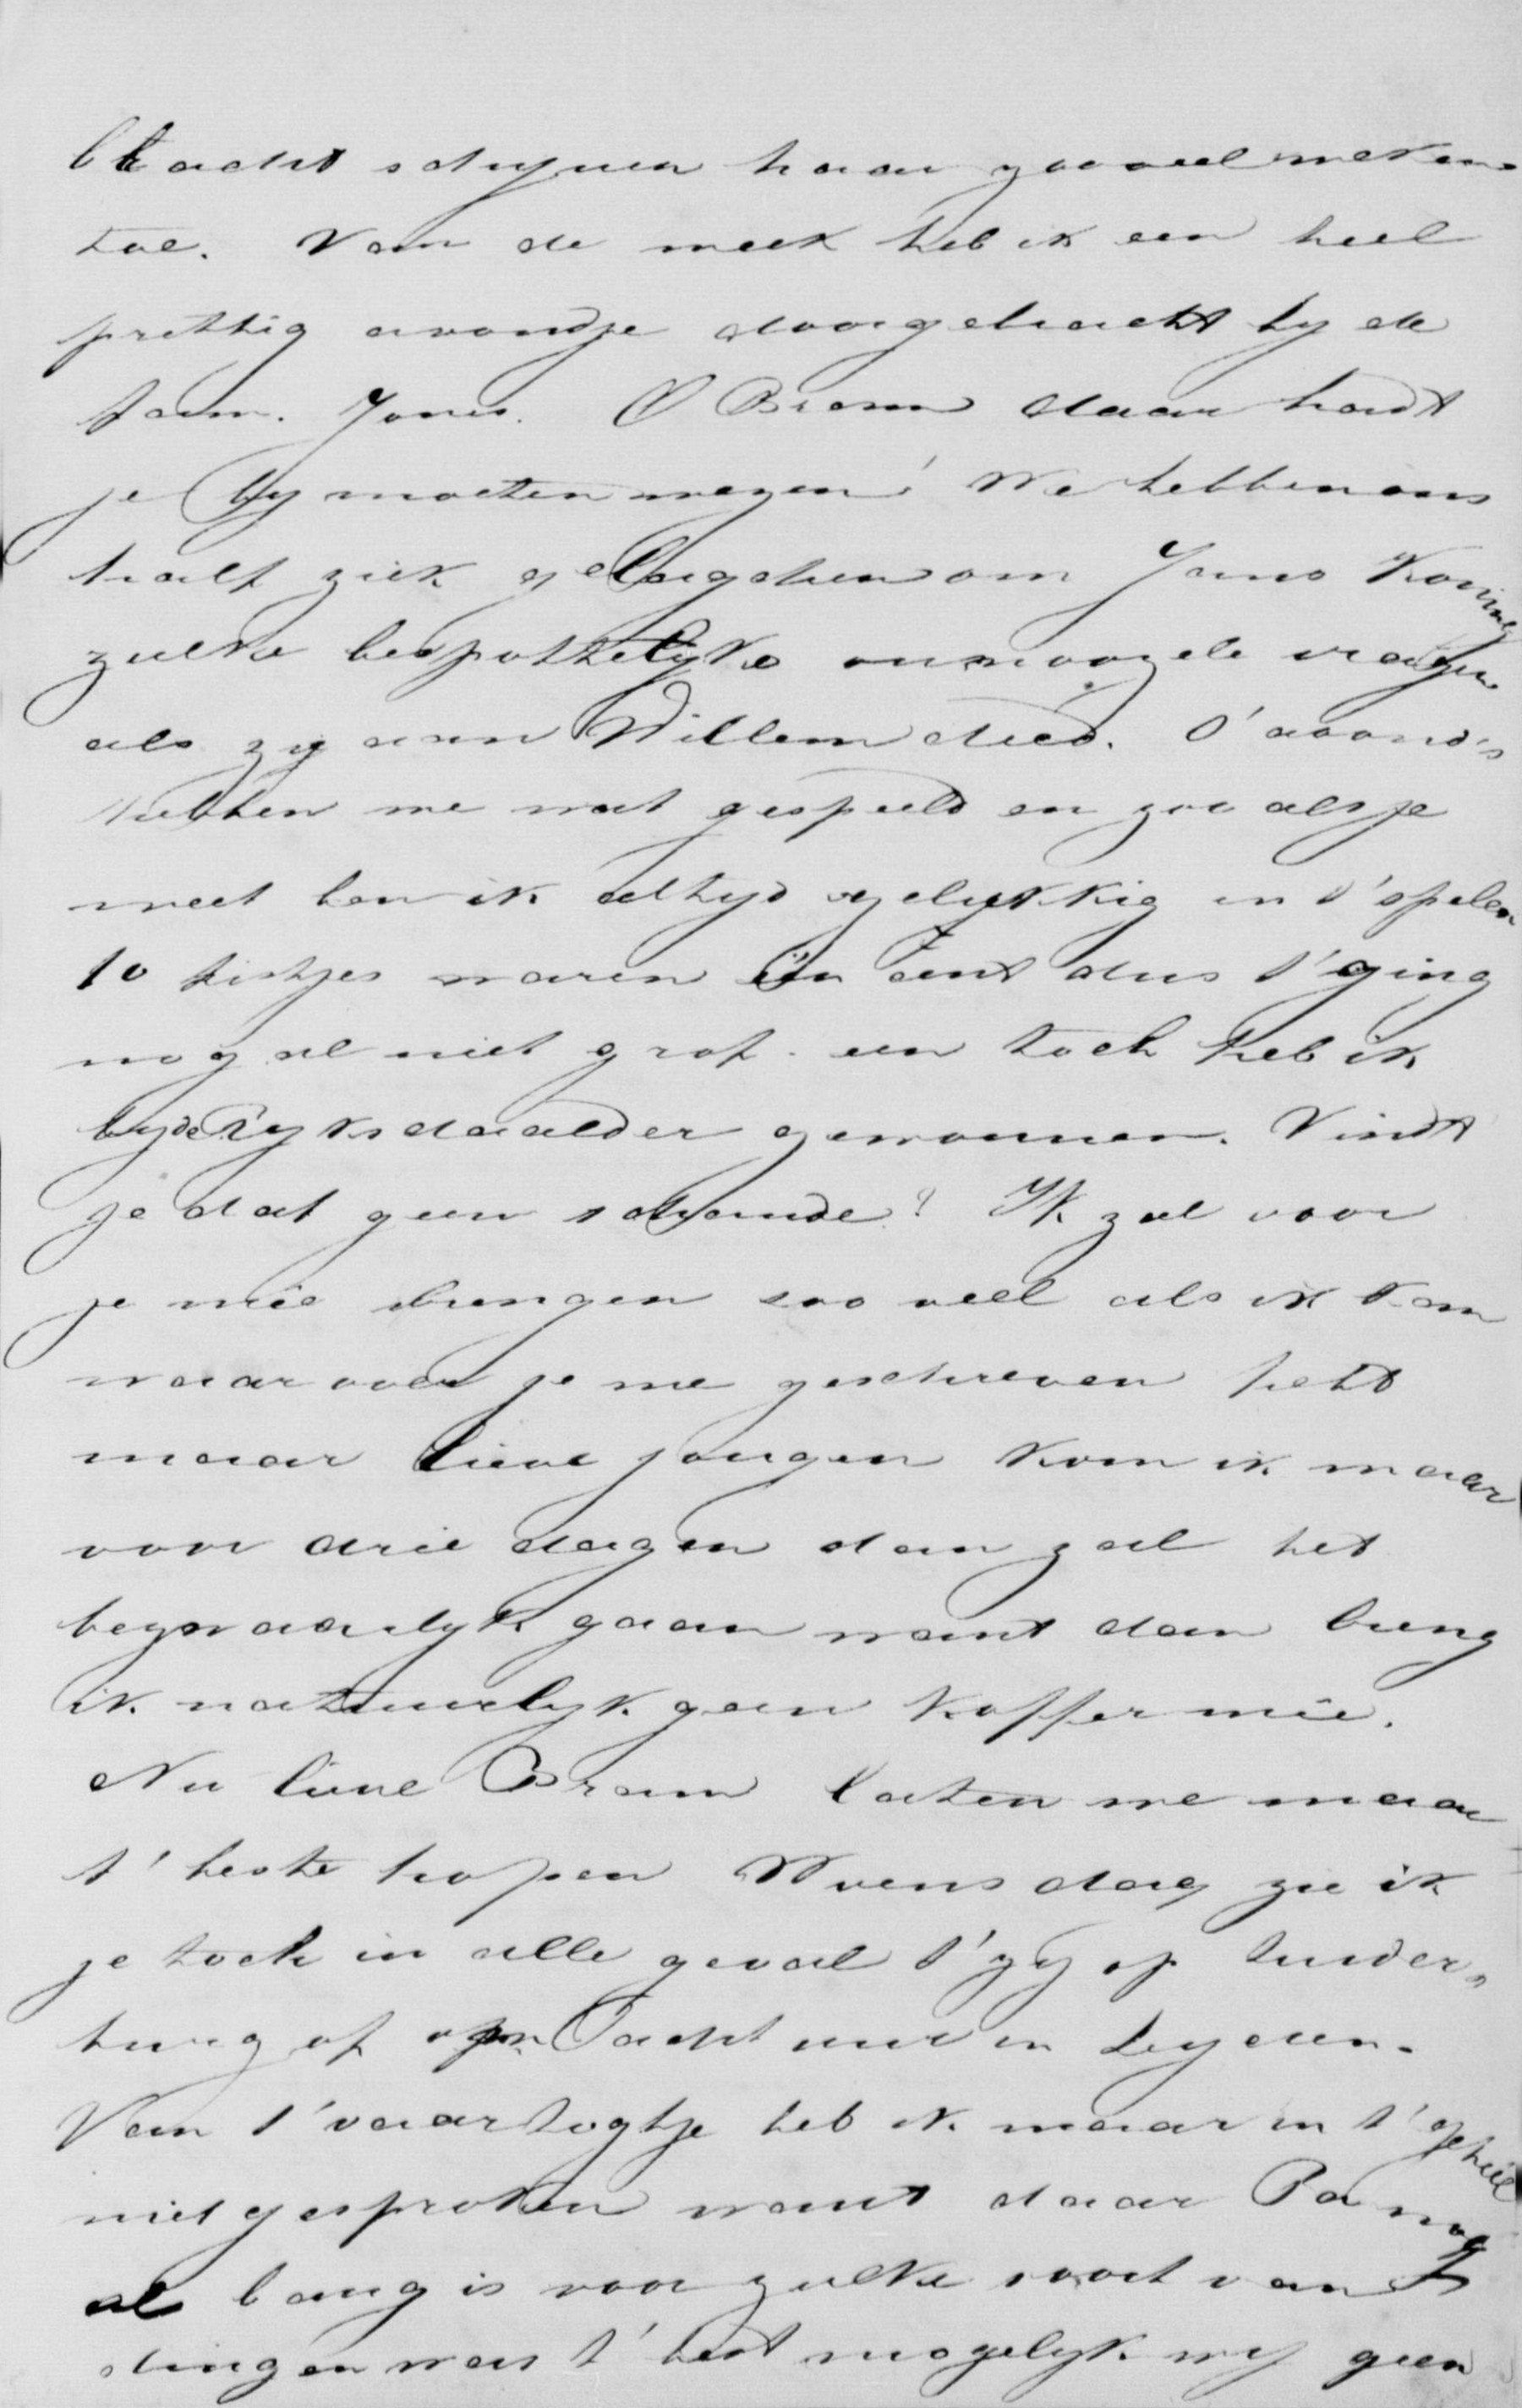 bkacht schynen haar zooveel weken
toe. Van de week heb ik een heel
prettig avondje doorgebracht by de
fam. Jones. O Bram daar hadt
je by moeten wezen! We hebben ons
half ziek gelagchen om Jans Koning
zulke bespottelyke onnoozele vragen
als zy aan Willem deed. S'avond's
hebben we wat gespeeld en zoo als je
weet ben ik altyd gelukkig in t'spelen
10 fistjes waren één Cent dus t'ging
nog al niet grof. een toch heb ik
byde Ryksdaalder gewonnen. Vindt
je dat geen schande? Ik zal voor
je mêe brengen zoo veel als ik kan
waarover je me geschreven hebt
maar lieve jongen kom ik maar
voor drie dagen dan zal het
bezwaarlyk gaan want dan breng
ik natuurlyk geen koffer mêe.
Nu lieve Bram laten we maar
t'beste hopen Woensdag zie ik
je toch in alle geval t'zy op
burg of om acht uur in Leyden.
Van t'vaartogtje heb ik maar in t'geheel
niet gesproken want daar Pa nog
al bang is voor zulke soort van
dingen was t'best mogelyk wy geen